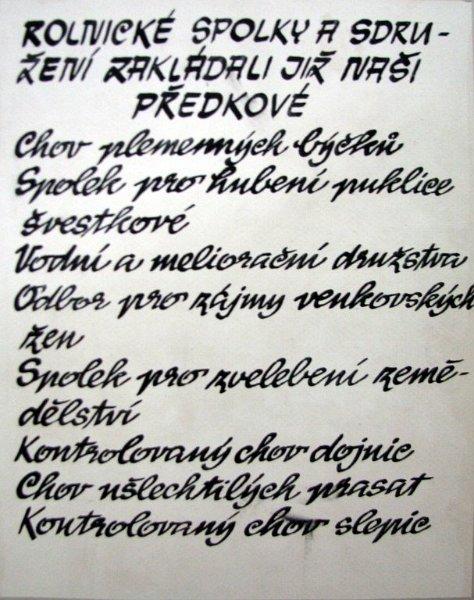 ROLNICKÉ SPOLKY A SDRU-
ŽENÍ ZAKLÁDALI JIŽ NAŠI
PŘEDKOVÉ
Chov plemenných býčků
Spolek pro hubení puklice
švestkové
Vodní a meliorační družstva
Odbor pro zájmy venkovských
žen
Spolek pro zvelebení země-
dělství
Kontrolovaný chov dojnic
Chov ušlechtilých prasat
Kontrolovaný chov slepic